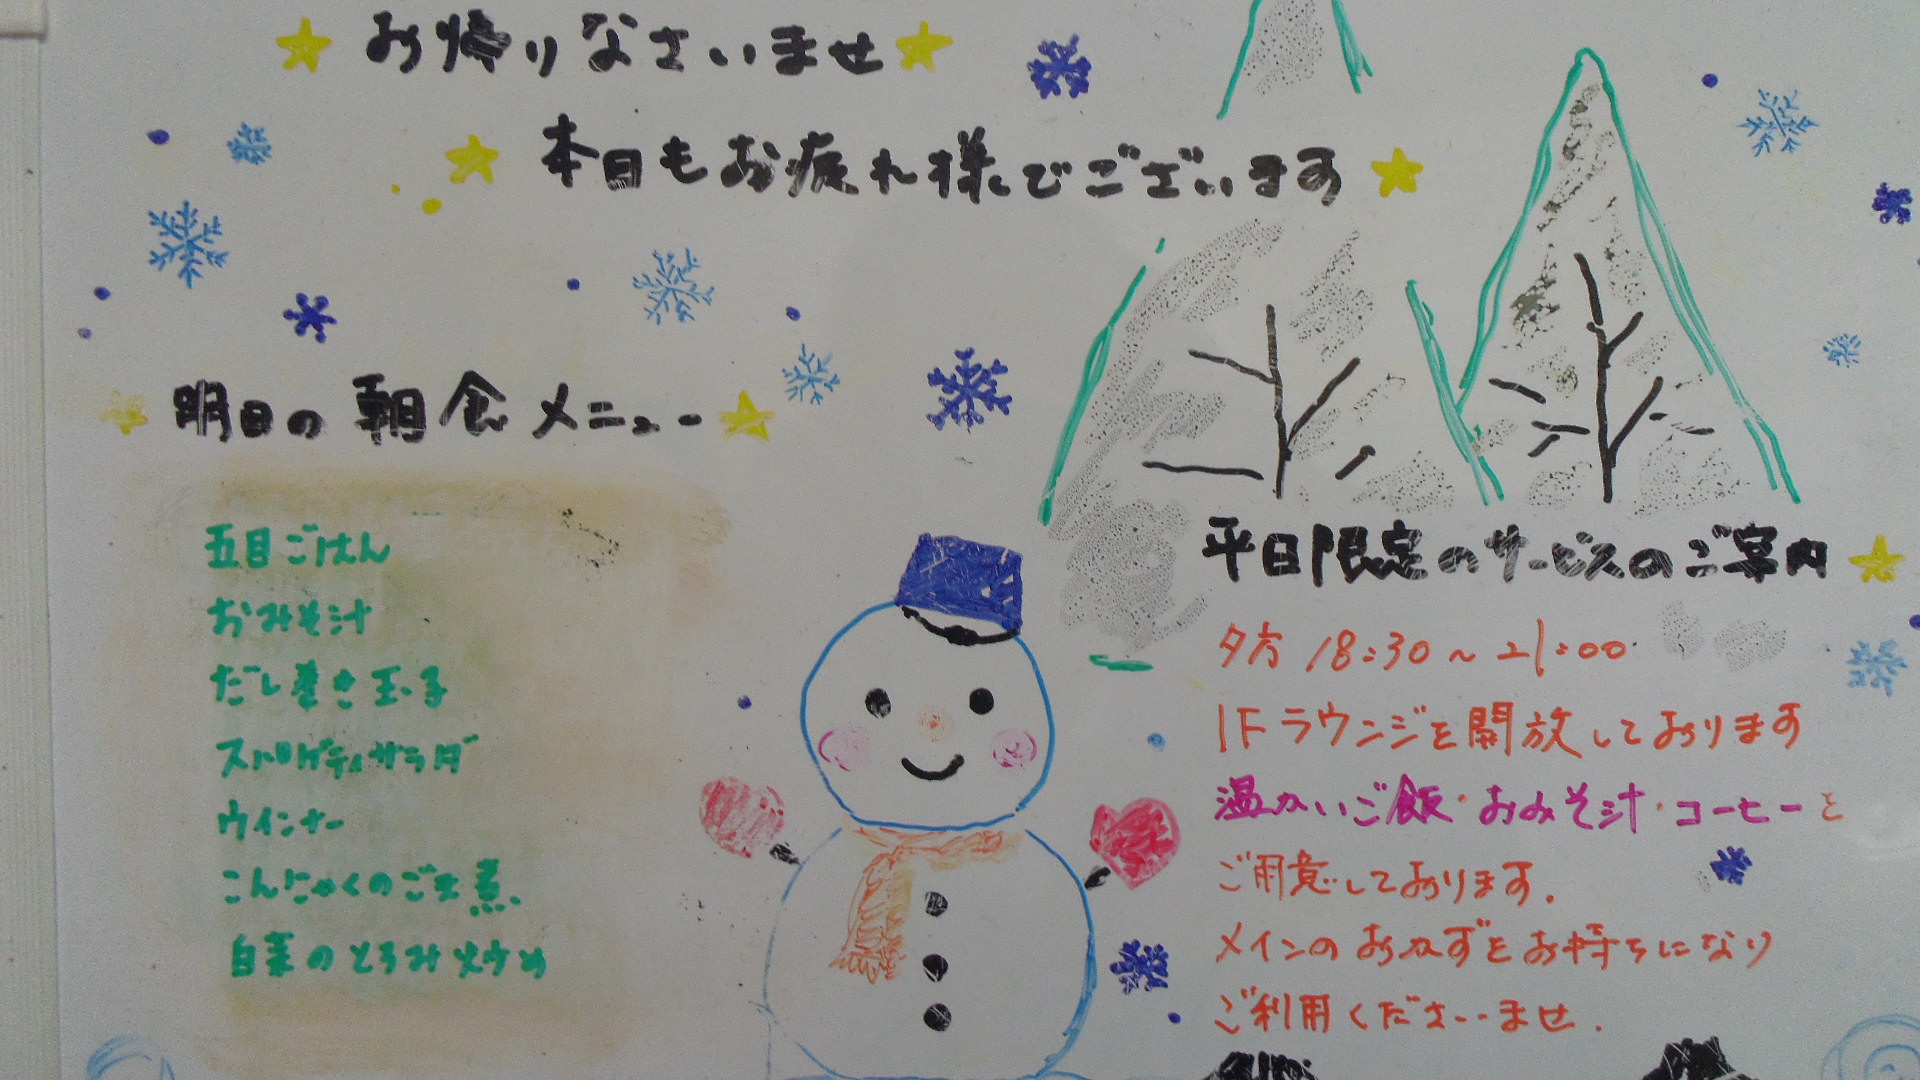 お帰りなさいませ
本日もお疲れ様でございます
明日の朝食メニュー
五目ごはん
おみそ汁
だし巻き玉子
スパゲティサラダ
ウインナー
こんにゃくのごま煮
白菜のとろみ炒め
平日限定のサービスのご案内
夕方 18:30～21:00
1Fラウンジを開放しております
温かいご飯・おみそ汁・コーヒーと
ご用意しております.
メインのおかずをお持ちになり
ご利用くださいませ.